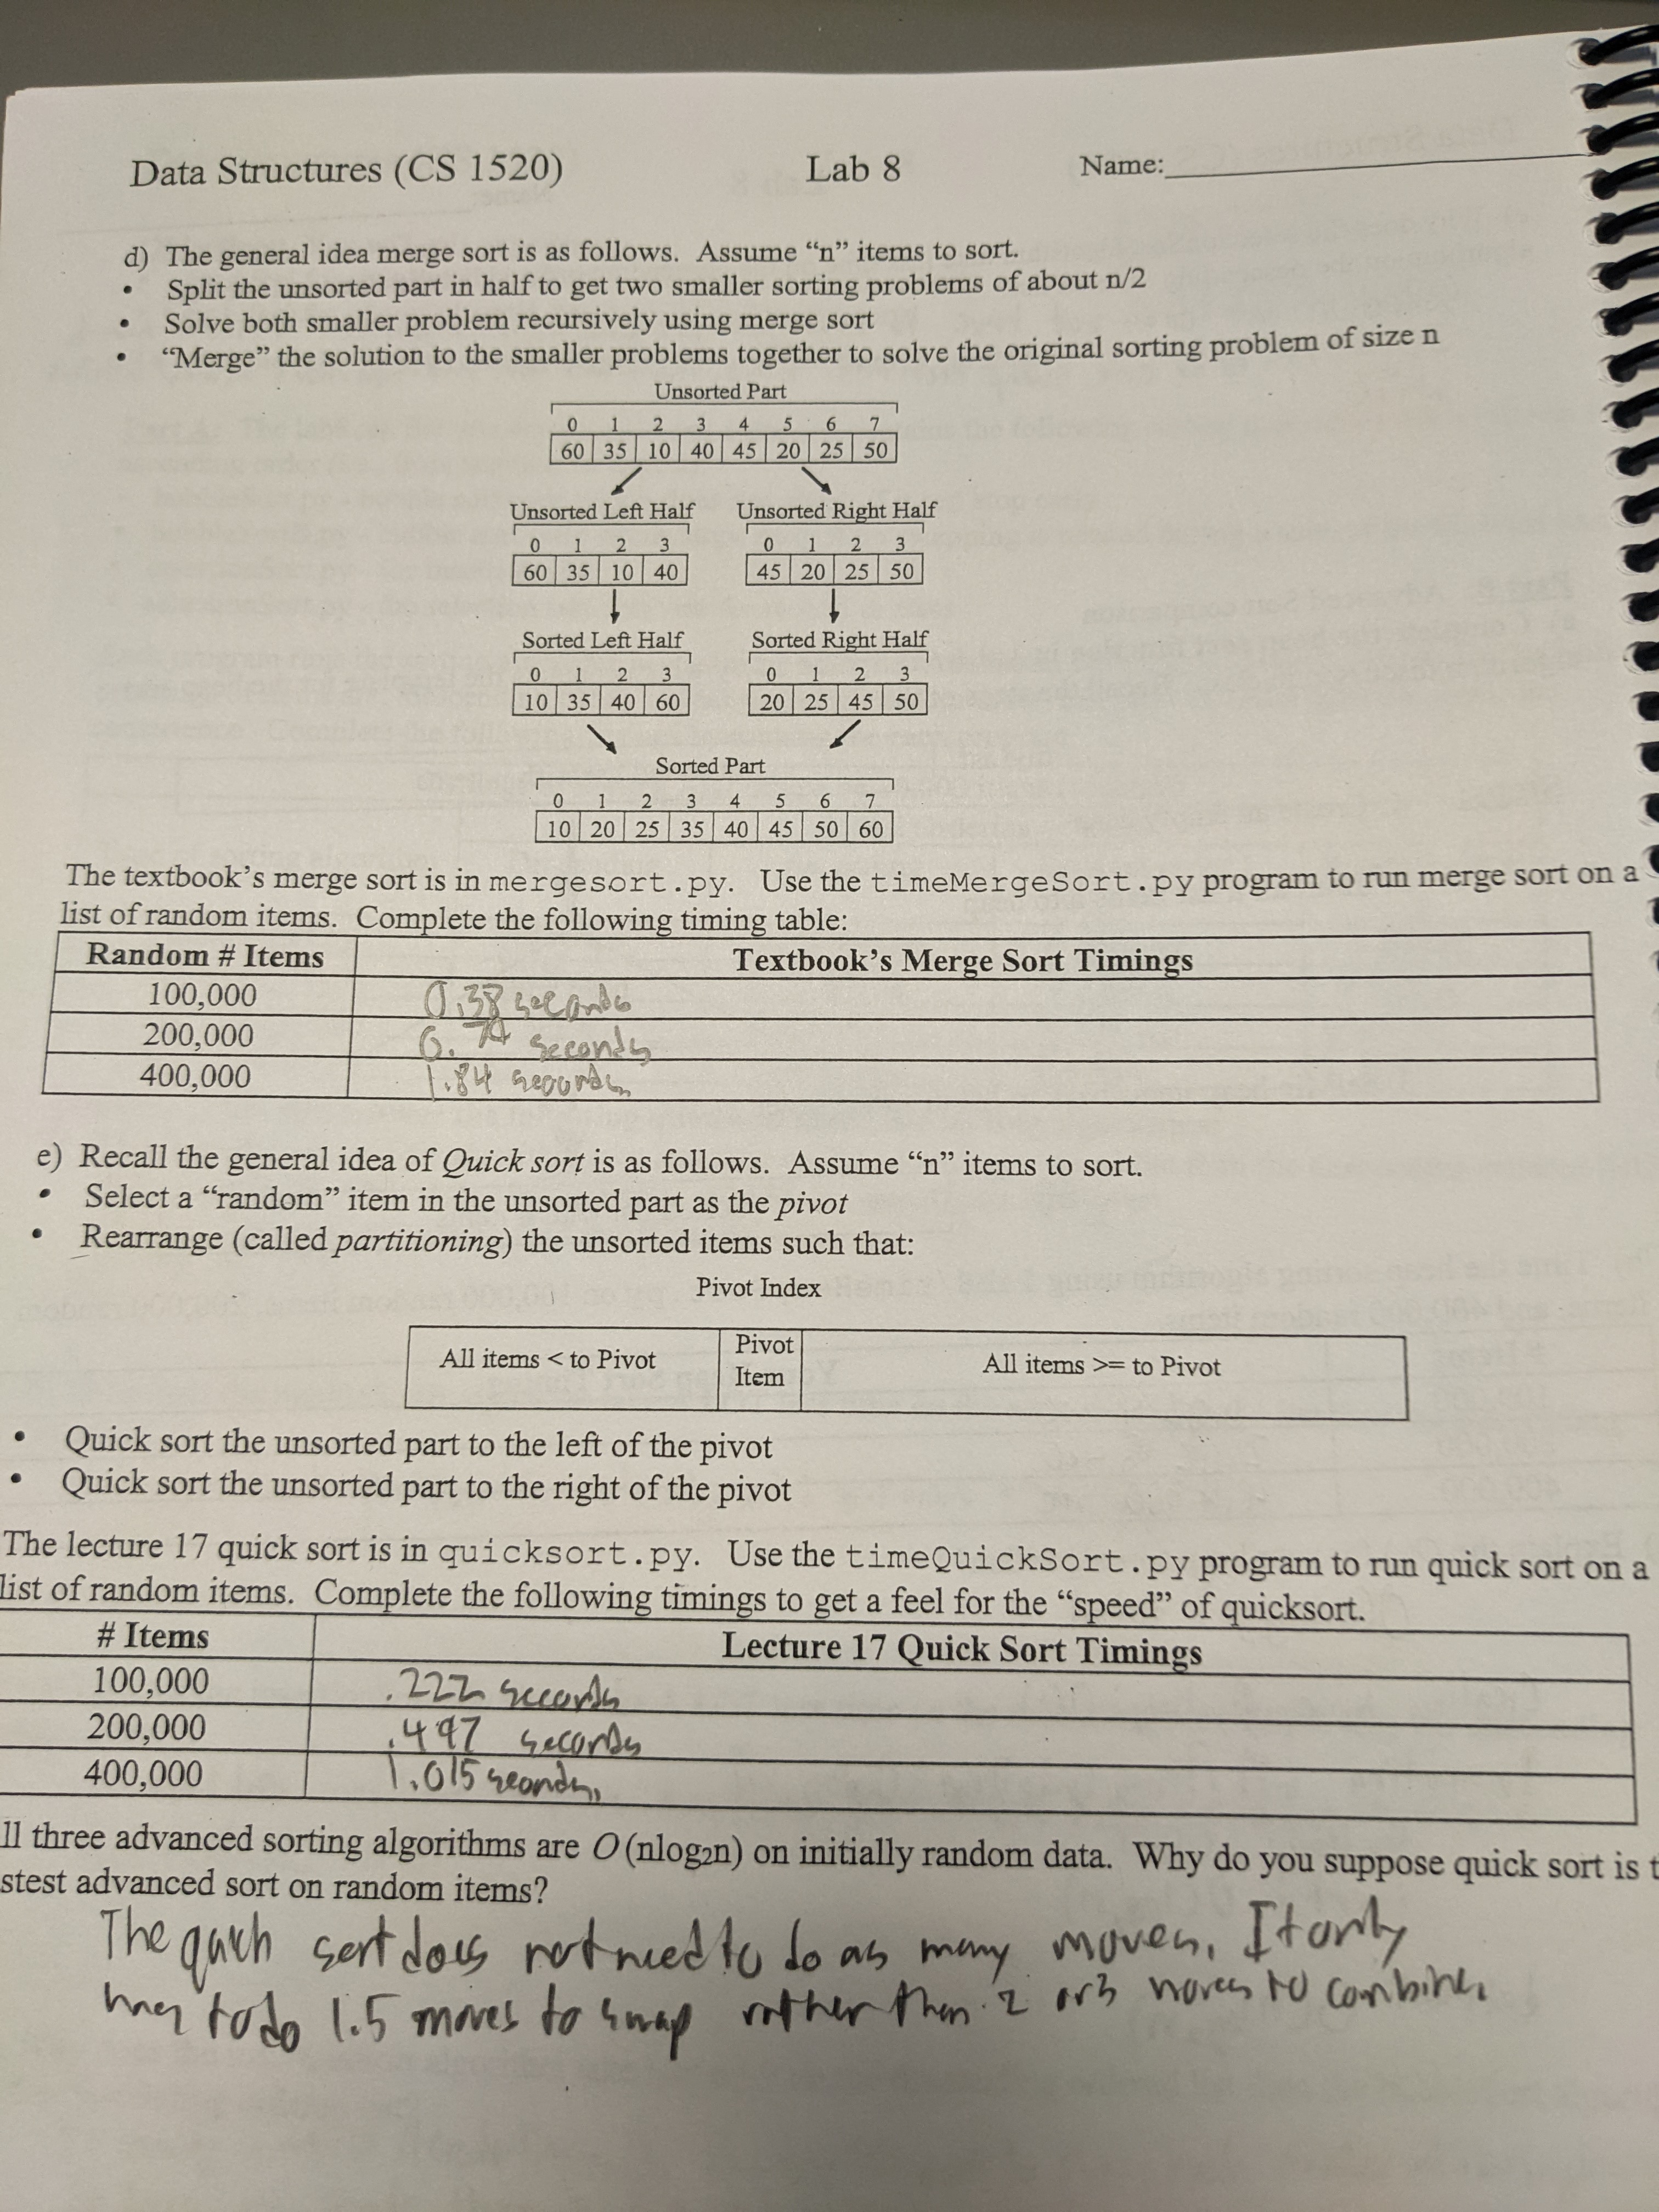 Data Structures (CS 1520) Lab 8 Name:
d) The general idea merge sort is as follows. Assume “n” items to sort.
• Split the unsorted part in half to get two smaller sorting problems of about n/2
• Solve both smaller problem recursively using merge sort
• “Merge” the solution to the smaller problems together to solve the original sorting problem of size n
Unsorted Part
0 1 2 3 4 5 6 7
60 35 10 40 45 20 25 50
Unsorted Left Half Unsorted Right Half
0 1 2 3 0 1 2 3
60 35 10 40 45 20 25 50
Sorted Left Half Sorted Right Half
0 1 2 3 0 1 2 3
10 35 40 60 20 25 45 50
Sorted Part
0 1 2 3 4 5 6 7
10 20 25 35 40 45 50 60
The textbook’s merge sort is in mergesort.py. Use the timeMergeSort.py program to run merge sort on a
list of random items. Complete the following timing table:
Random # Items Textbook’s Merge Sort Timings
100,000 0.38 seconds
200,000 0.74 seconds
400,000 1.84 seconds
e) Recall the general idea of Quick sort is as follows. Assume “n” items to sort.
• Select a “random” item in the unsorted part as the pivot
• Rearrange (called partitioning) the unsorted items such that:
Pivot Index
All items < to Pivot Pivot Item All items >= to Pivot
• Quick sort the unsorted part to the left of the pivot
• Quick sort the unsorted part to the right of the pivot
The lecture 17 quick sort is in quicksort.py. Use the timeQuickSort.py program to run quick sort on a
list of random items. Complete the following timings to get a feel for the “speed” of quicksort.
# Items Lecture 17 Quick Sort Timings
100,000 .222 seconds
200,000 .497 seconds
400,000 1.015 seconds
ll three advanced sorting algorithms are O(nlog2n) on initially random data. Why do you suppose quick sort is t
stest advanced sort on random items?
The quick sort does not need to do as many moves. It only
has to do 1.5 moves to swap rather than 2 or 3 moves to combine.